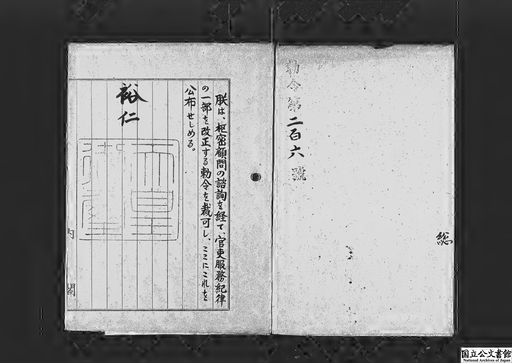 勅令第二百六號
総
朕は、枢密顧問の諮詢を経て、官吏服務紀律
の一部を改正する勅令を裁可し、ここにこれを
公布せしめる。
裕仁
内閣
国立公文書館
National Archives of Japan